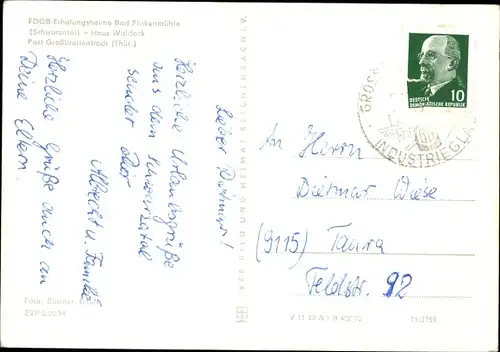 FDGB-Erholungsheime Bad Finkenmühle
(Schwarzatal) – Haus Waldeck
Post Großbreitenbach (Thür.)
Lieber Dietmar!
Herzliche Urlaubsgrüße
aus dem Schwarzatal
sendet Dir
Albrecht u. Familie
Herzliche Grüße auch an
Deine Eltern.
VEB BILD UND HEIMAT REICHENBACH I. V.
10
DEUTSCHE
DEMOKRATISCHE REPUBLIK
GROSSB
INDUSTRIEGLA
An Herrn
Dietmar Wiese
(9115) Taura
Feldstr. 92
Foto:
EVP 0,20 M
V 11 28 A 1 B